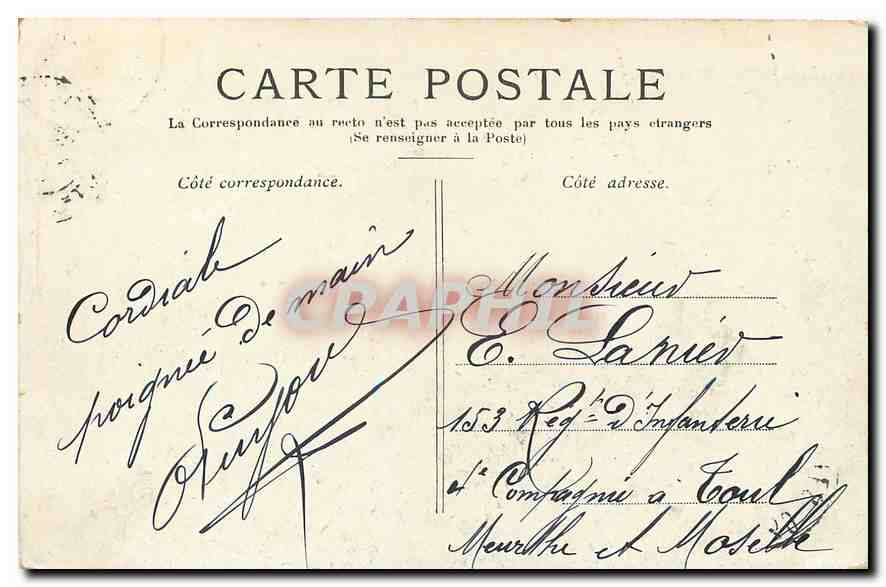 CARTE POSTALE
La Correspondance au recto n'est pas acceptée par tous les pays etrangers
(Se renseigner à la Poste)
Côté correspondance.
Côté adresse.
Cordiale
poignée de main
Monsieur
E. Lanier
153 Régt d'Infanterie
4e Compagnie à Toul
Meurthe et Moselle
CPAPHIL